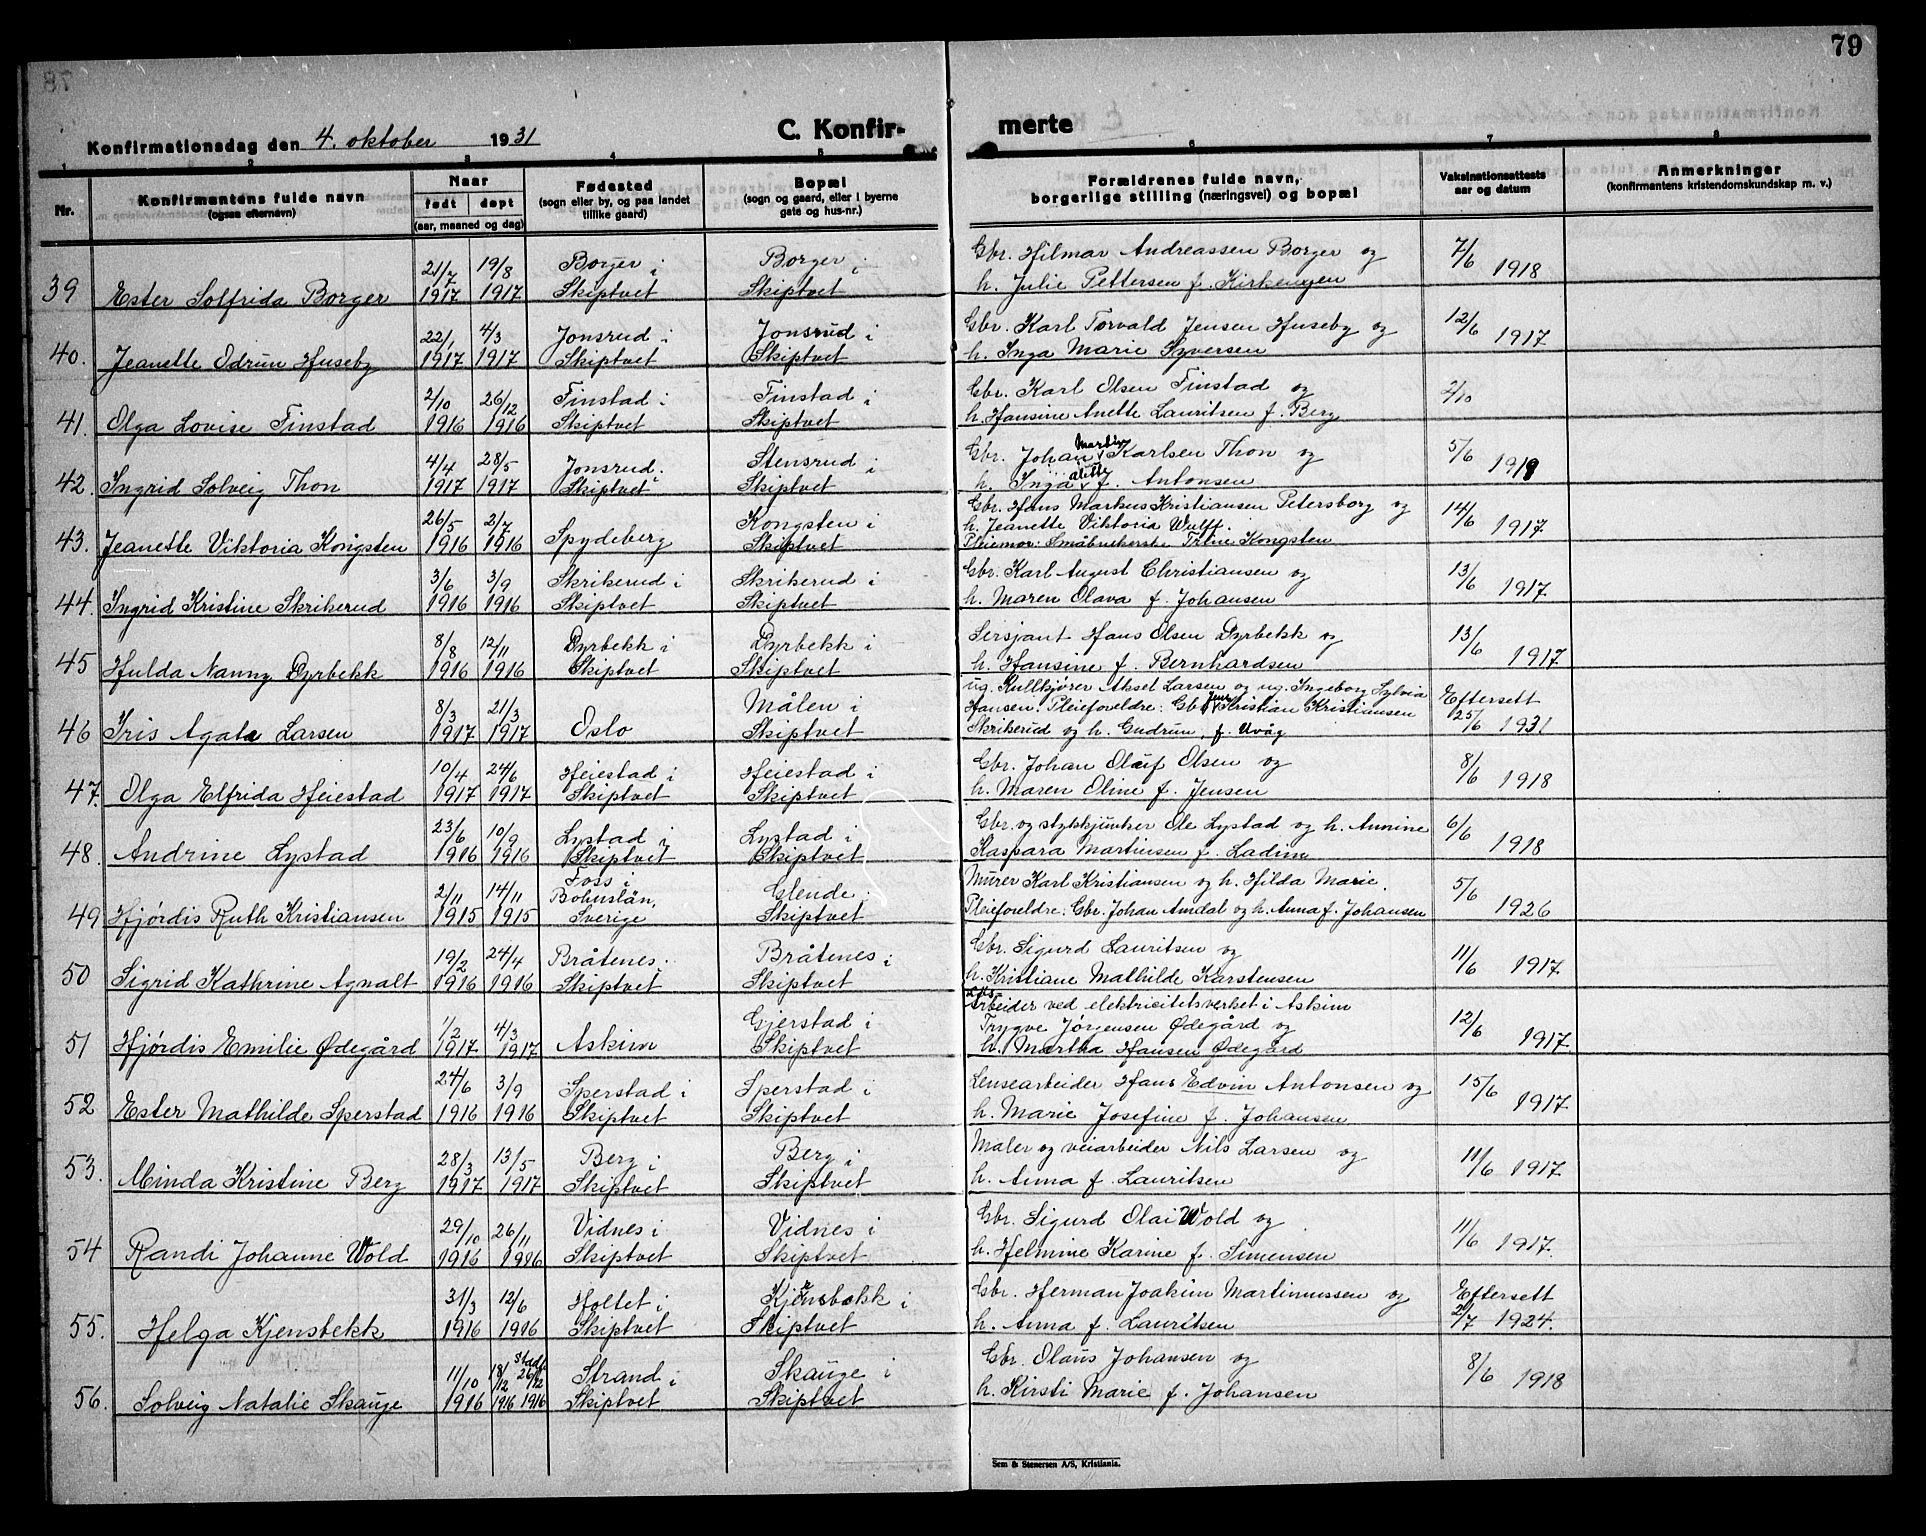 79
Konfirmationsdag den 4. oktober 1931
C. Konfir-
merte
1 2 3 4 5 6 7 8
Nr.
Konfirmantens fulde navn
(ogsaa efternavn)
Naar
født døpt
(aar, maaned og dag)
Fødested
(sogn eller by, og paa landet
tillike gaard)
Bopæl
(sogn og gaard, eller i byerne
gate og hus-nr.)
Forældrenes fulde navn,
borgerlige stilling (næringsvei) og bopæl
Vaksinationsattests
aar og datum
Anmerkninger
(konfirmantens kristendomskundskap m. v.)
21/7 19/8 Borger i Borger i Gbr. Hilmar Andreassen Borger og 7/6
39 Ester Solfrida Borger 1917 1917 Skiptvet Skiptvet h. Julie Pettersen f. Kirkengen 1918
22/1 4/3 Jonsrud i Jonsrud i Gbr. Karl Torvald Jensen Huseby og 12/6
40. Jeanette Odrun Huseby 1917 1917 Skiptvet Skiptvet h. Inga Marie Syversen 1917
2/10 26/12 Finstad i Finstad i Gbr. Karl Olsen Finstad og 2/10
41. Olga Lovise Finstad 1916 1916 Skiptvet Skiptvet h. Hansine Anette Lauritsen f. Berg
4/4 28/5 Jonsrud i Stensrud i Gbr. Johan Karlsen Thon og 5/6
42. Ingrid Solveig Thon 1917 1917 Skiptvet Skiptvet h. Inga f. Antonsen
26/5 2/7 Kongsten i Gbr. Hans Markus Kristiansen Petersborg og 14/6
h. Jeanette Viktoria Wulff.
43. Jeanette Viktoria Kongsten 1916 1916 Spydeberg Skiptvet Pleiemor: Småbrukerske Trine Kongsten 1917
3/6 3/9 Skrikerud i Skrikerud i Gbr. Karl August Christiansen og 13/6
44. Ingrid Kristine Skrikerud 1916 1916 Skiptvet Skiptvet h. Maren Olava f. Johansen 1917
8/8 12/11 Dyrbekk i Dyrbekk i Sersjant Hans Olsen Dyrbekk og 13/6
45 Hulda Nanny Dyrbekk 1916 1916 Skiptvet Skiptvet h. Hansine f. Bernhardsen 1917
8/3 21/3 Målen i ug. Kullkjører Aksel Larsen og ug. Ingeborg Sylvia Eftersett
Hansen. Pleieforeldre: Gbr. Jens Kristian Kristiansen
46 Iris Agate Larsen 1917 1917 Oslo Skiptvet Skrikerud og h. Gudrun f. Uvåg 25/6 1931
10/4 24/6 Heiestad i Heiestad i Gbr. Johan Olaif Olsen og 8/6
47. Olga Elfrida Heiestad 1917 1917 Skiptvet Skiptvet h. Maren Oline f. Jensen 1918
23/6 10/9 Lystad i Lystad i Gbr. og stykkjunker Ole Lystad og h. Annine 6/6
48. Andrine Lystad 1916 1916 Skiptvet Skiptvet Kaspara Martinsen f. Ladim 1918
2/11 14/11 Foss i Glende i Murer Karl Kristiansen og h. Hilda Marie. 5/6
Bohuslän,
49 Hjørdis Ruth Kristiansen 1915 1915 Sverige Skiptvet Pleieforeldre: Gbr. Johan Amdal og h. Anna f. Johansen 1926
19/2 24/4 Bråtenes i Bråtenes i Gbr. Sigurd Lauritsen og 11/6
50 Sigrid Kathrine Agnalt 1916 1916 Skiptvet Skiptvet h. Kristiane Mathilde Karstensen 1917
1/2 4/3 Gjerstad i Arbeider ved elektricitetsverket i Askim
Trygve Jørgensen Ødegård og 12/6
51 Hjørdis Emilie Ødegård 1917 1917 Askim Skiptvet h. Martha Hansen Ødegård 1917
24/6 3/9 Sperstad i Sperstad i Lensearbeider Hans Edvin Antonsen og 15/6
52 Ester Mathilde Sperstad 1916 1916 Skiptvet Skiptvet h. Marie Josefine f. Johansen 1917
28/3 13/5 Berg i Berg i Maler og veiarbeider Nils Larsen og
53. Minda Kristine Berg 1917 1917 Skiptvet Skiptvet h. Anna f. Lauritsen 11/6 1917
29/10 26/11 Vidnes i Vidnes i Gbr. Sigurd Olai Wold og
54 Randi Johanne Wold 1916 1916 Skiptvet Skiptvet h. Helmine Karine f. Simensen 11/6 1917.
31/3 12/6 Holtet i Kjensbekk i Gbr. Herman Joakim Martinussen og Eftersett
55. Helga Kjensbekk 1916 1916 Skiptvet Skiptvet h. Anna f. Lauritsen 2/7 1924.
11/10 18/12 26/12 Strand i Skauge i Gbr. Olaus Johansen og 8/6
56. Solveig Natalie Skauge 1916 1916 1916 Skiptvet Skiptvet h. Kirsti Marie f. Johansen 1918
Sem & Stenersen A/S, Kristiania.